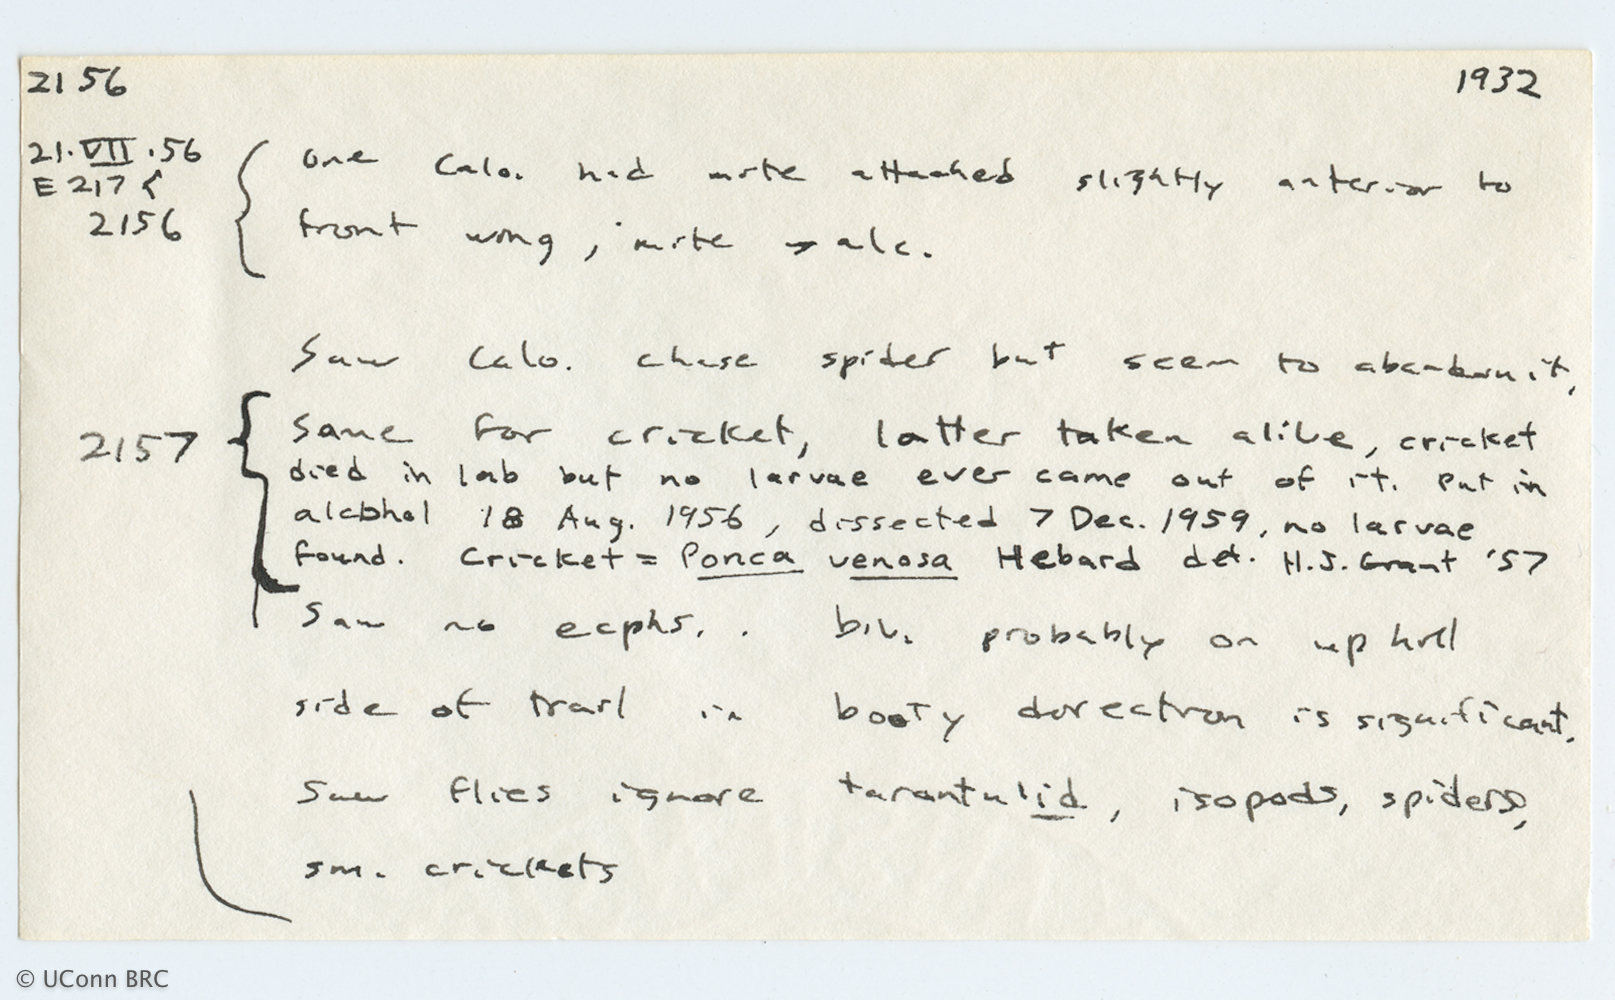 2156 1932
21.VII.56
E 217 {
2156
one Calo. had mite attached slightly anterior to
front wing, mite → alc.
Saw Calo. chase spider but seem to abandon it.
2157
Same for cricket, latter taken alive, cricket
died in lab but no larvae ever came out of it. Put in
alcohol 18 Aug. 1956, dissected 7 Dec. 1959, no larvae
found. Cricket = Ponca venosa Hebard det. H.J. Grant '57
Saw no ecphs. . biv. probably on up hill
side of trail in booty direction is significant.
Saw flies ignore tarantulid, isopods, spiders,
sm. crickets
© UConn BRC